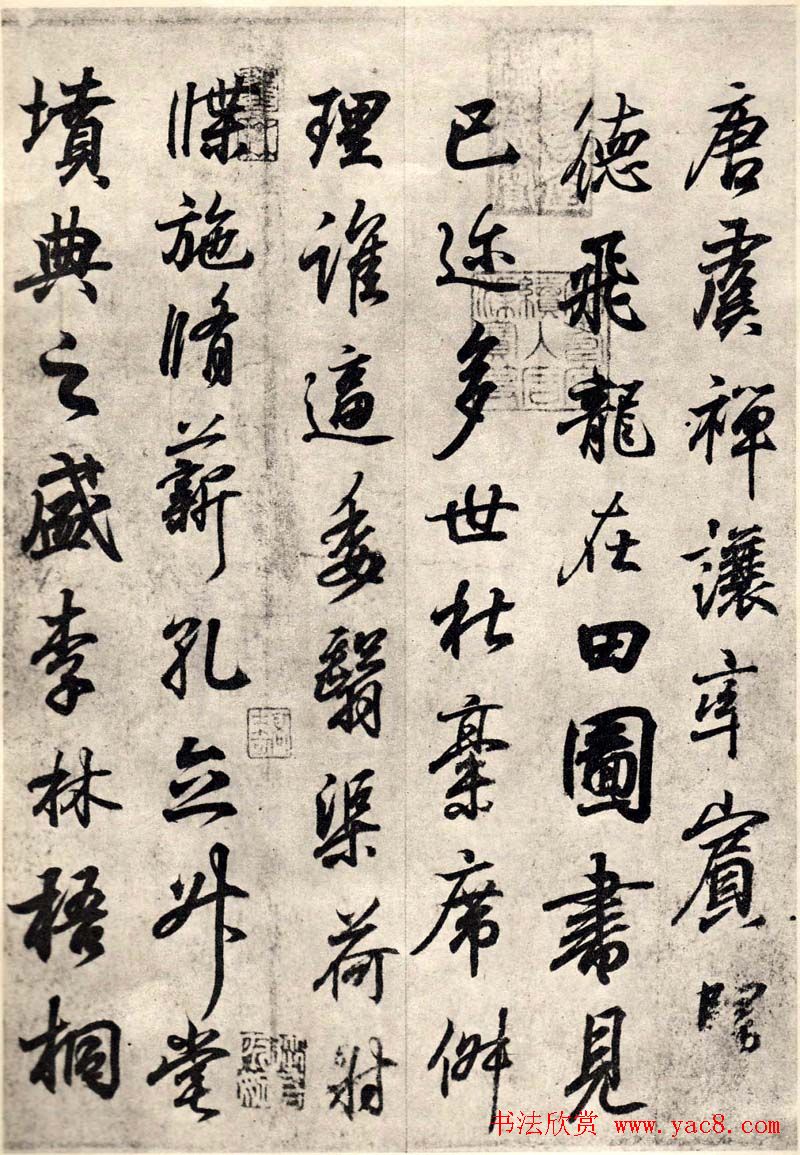 唐虞禪讓率賓
德飛龍在田圖書見
已迩多世杜稾席
理誰逼委翳渠荷
牒施脩薪孔立外堂
墳典之盛李林梧桐
书法欣赏 www.yac8.com